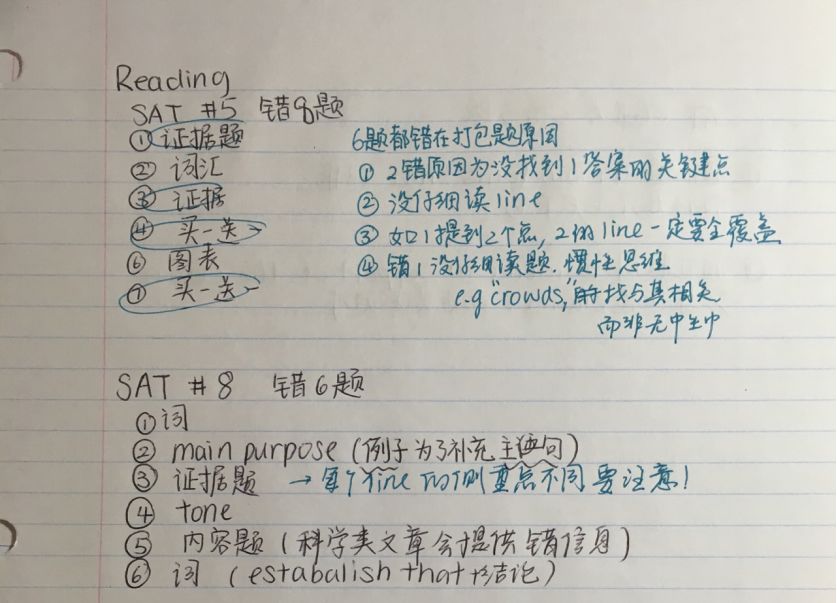 Reading
SAT #5 错8题
① 证据题
② 词汇
③ 证据
④ 买一送一
⑥ 图表
⑦ 买一送一
6题都错在打包题原因
① 2错原因为没找到1答案的关键点
② 没仔细读line
③ 如1提到2个点, 2的line一定要全覆盖
④ 错1没仔细读题, 惯性思维
e.g "crowds," 时找与其相关
而非无中生中
SAT #8 错6题
① 词
② main purpose (例子为了补充主题句)
③ 证据题 → 每个line 侧重点不同要注意!
④ tone
⑤ 内容题 (科学类文章会提供错信息)
⑥ 词 (estabalish that +结论)